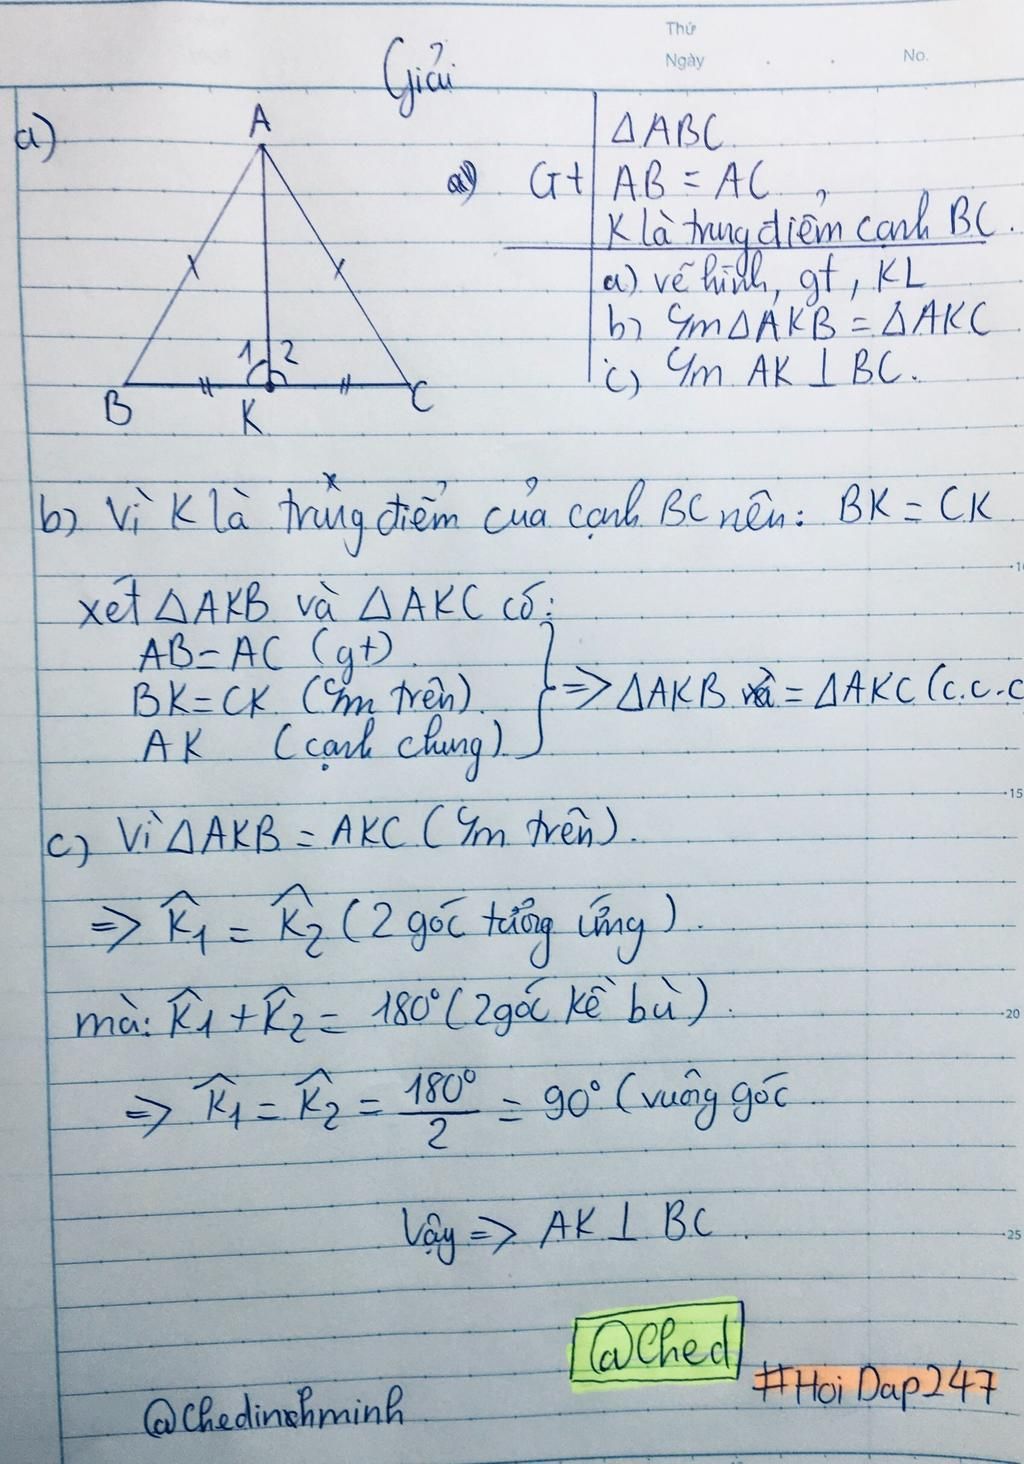 Thứ
Ngày
No.
Giải
a)
A
1 2
B
K
C
a) Gt
ΔABC
AB = AC
K là trung điểm cạnh BC.
a) vẽ hình, gt, KL
b) Cm ΔAKB = ΔAKC
c) Cm AK ⊥ BC.
b) Vì K là trung điểm của cạnh BC nên: BK = CK
xét ΔAKB và ΔAKC có:
AB = AC (gt)
BK = CK (Cm trên)
AK (cạnh chung)
=> ΔAKB = ΔAKC (c.c.c
c) Vì ΔAKB = AKC (Cm trên).
=> K̂1 = K̂2 (2 góc tưởng ứng).
mà: K̂1 + K̂2 = 180° (2 góc kề bù).
=> K̂1 = K̂2 = 180°/2 = 90° (vuông góc
Vậy => AK ⊥ BC.
@Ched
#HoiDap247
@chedinhminh
10
15
20
25